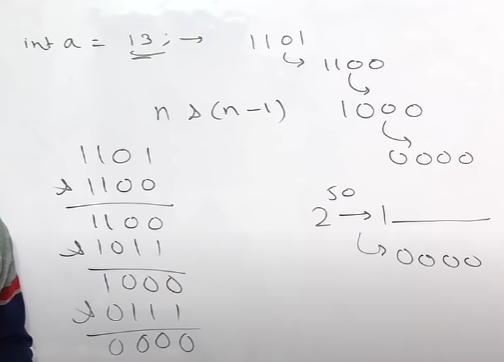 int a = 13; → 1101
↳ 1100
↳
n & (n-1) 1000
↳
0000
1101
& 1100
1100
& 1011
1000
& 0111
0000
50
2 → 1
↳ 0000